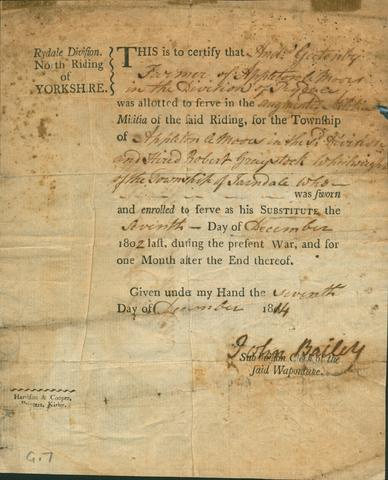 Rydale Division.
North Riding
of
YORKSHIRE.
THIS is to certify that
Farmer of Appleton Le Moors
in the Division of
was allotted to serve in the
Militia of the said Riding, for the Township
of Appleton Le Moors in the
and Hired Robert Graystock Wheelwright
of the Township of Farndale Who
was sworn
and enrolled to serve as his SUBSTITUTE the
Seventh Day of December
1802 last, during the present War, and for
one Month after the End thereof.
Given under my Hand the seventh
Day of December 18
John Bailey
Sub Division Clerk of the
said Wapontake.
Harrison & Cooper,
Printers, Kirby.
G.7